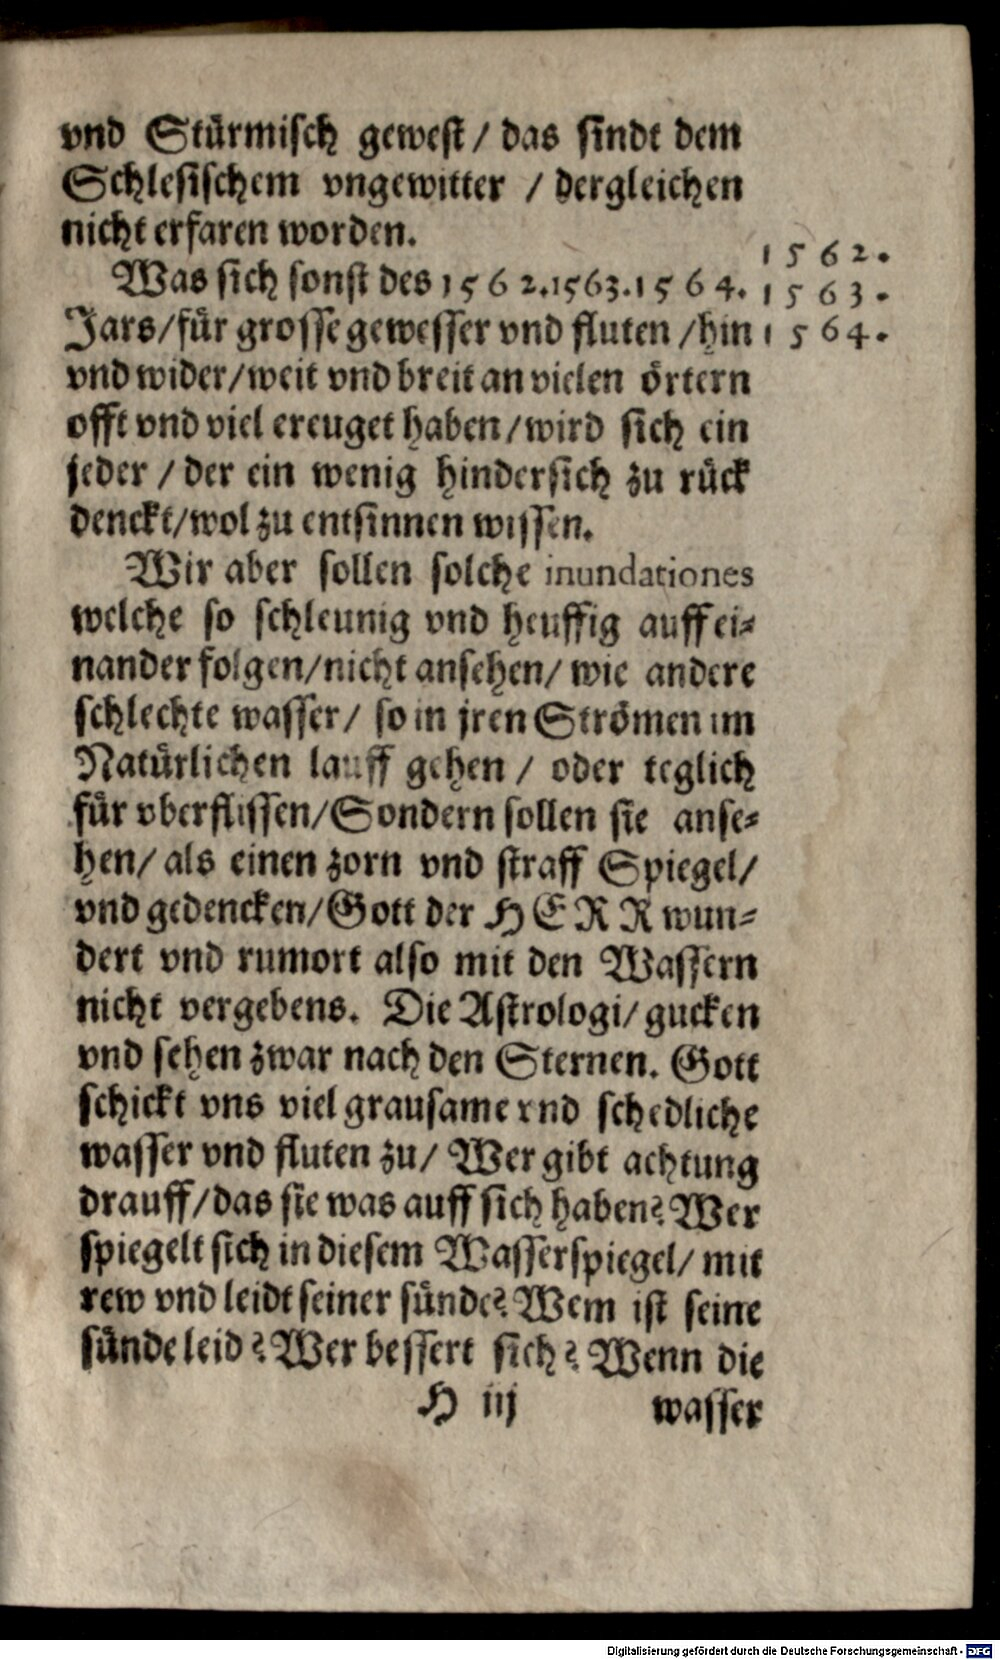 vnd Stürmisch gewest / das sindt dem
Schlesischem vngewitter / dergleichen
nicht erfaren worden.
Was sich sonst des 1562. 1563. 1564.
Jars/für grosse gewesser vnd fluten /hin
vnd wider/weit vnd breit an vielen örtern
offt vnd viel ereuget haben/wird sich ein
jeder / der ein wenig hindersich zu rück
denckt/wol zu entsinnen wissen.
1562.
1563.
1564.
Wir aber sollen solche inundationes
welche so schleunig vnd heuffig auff ei-
nander folgen/nicht ansehen/ wie andere
schlechte wasser/ so in jren Strömen im
Natürlichen lauff gehen / oder teglich
für vberflissen/Sondern sollen sie anse-
hen/ als einen zorn vnd straff Spiegel/
vnd gedencken/Gott der HERR wun-
dert vnd rumort also mit den Wassern
nicht vergebens. Die Astrologi/ gucken
vnd sehen zwar nach den Sternen. Gott
schickt vns viel grausame vnd schedliche
wasser vnd fluten zu/ Wer gibt achtung
drauff/das sie was auff sich haben? Wer
spiegelt sich in diesem Wasserspiegel/ mit
rew vnd leidt seiner sünde? Wem ist seine
sünde leid? Wer bessert sich? Wenn die
H iij
wasser
Digitalisierung gefördert durch die Deutsche Forschungsgemeinschaft - DFG